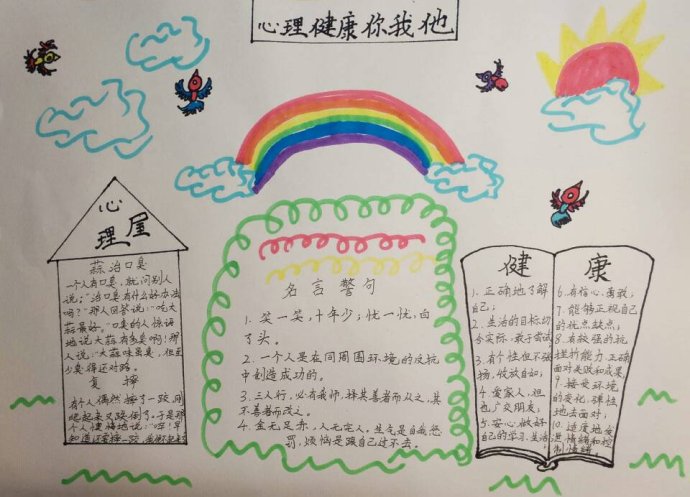 心理健康你我他
心
理
屋
蒜治口臭
一个人有口臭，就问别人
说："治口臭有什么好办法
吗？"那人回答说："吃大
蒜最好。"口臭的人惊讶
地说大蒜有多臭啊！那
人说："大蒜味虽臭，但至
少臭得还对路。
复摔
有个人偶然摔了一跤，刚
爬起来又跌倒了。于是那
个人懊悔地说："哼！早
知道还要摔一跤
名言警句
1. 笑一笑，十年少；忧一忧，白
了头。
2. 一个人是在同周围环境的反抗
中创造成功的。
3. 三人行，必有我师，择其善者而从之，其
不善者而改之。
4. 金无足赤，人无完人。生气是自我惩
罚，烦恼是跟自己过不去。
健
1. 正确地了解
自己；
2. 生活的目标切
合实际，敢于尝试
3. 有个性但不张
扬，收放自如；
4. 爱家人，但
也广交朋友；
5. 安心做好
自己的学习，生活
康
6. 有信心，勇敢；
7. 能够正视自己
的优点缺点；
8. 有较强的抗
挫折能力，正确
面对失败和成果
9. 接受环境
的变化，弹性
地去面对；
10. 适度地发
泄情绪和控
制情绪